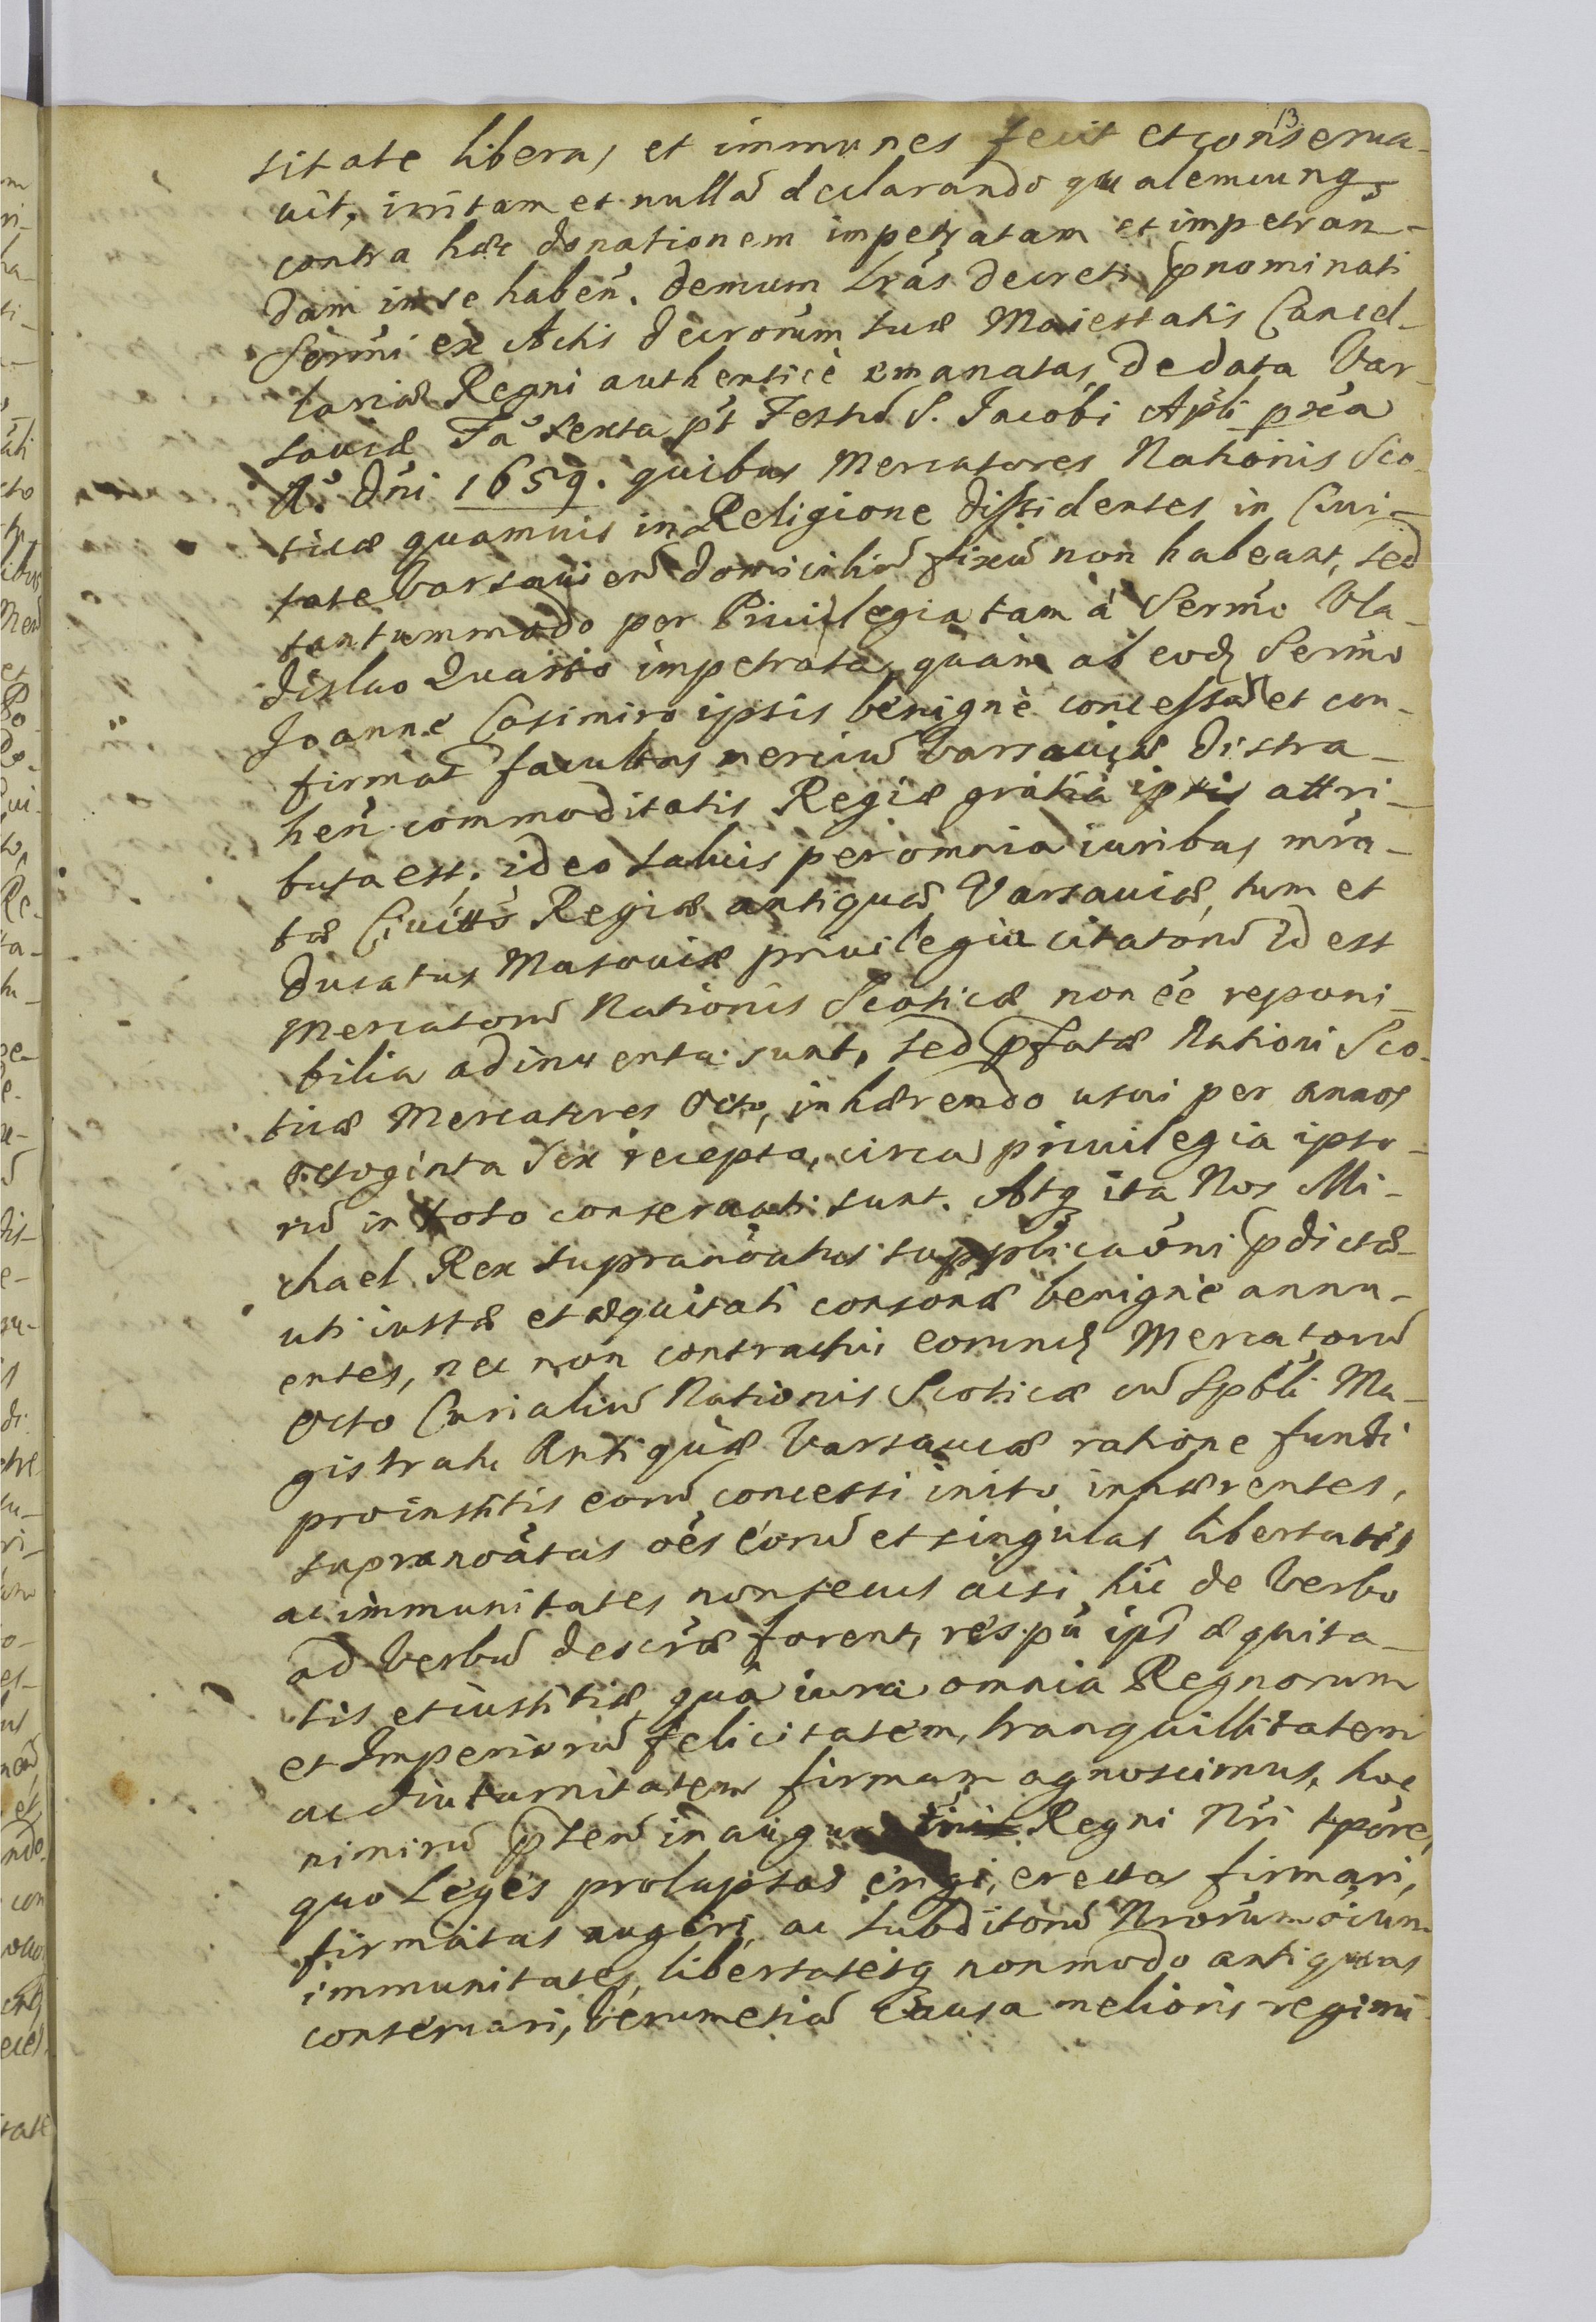 13
sitate libera, et immunes fecit et conserua-
uit, irritam et nullā declarando qualemcunq;
contra hāc donationem impetratam et impetran-
dam in se habeñ. demum Lrās decreti pnominati
Sermi ex Actis decrorum suæ Maiestatis Cancel-
lariæ Regni authenticè emanatas, de data Var-
sauiæ Fā sexta pt Festū S. Jacobi Apli pxa
A° Dni 1659. quibus Mercatores Nationis Sco-
ticæ quamuis in Religione dissidentes in Ciui-
tate Varsauien̄ domicilium fixū non habeant, sed
tantummodo per Priuilegia tam à Sermo Vla-
dislao Quarto impetrata, quàm ab eod Sermo
Joanne Casimiro ipsis benignè concessa et con-
firmat facultas merciū Varsauiæ distra-
hen commoditatis Regiæ gratiâ ipsis attri-
buta est, ideo saluis per omnia iuribus mra-
tæ Ciuitts Regiæ antiquæ Varsauiæ, tum et
Ducatus Masouiæ priuilegia citatorū id est
Mercatorū Nationis Scoticæ non ee reponi-
bilia adinuenta sunt, sed pfatæ Nationi Sco-
ticæ Mercatores Octo, inhærendo usui per annos
octoginta sex recepto, circa priuilegia ipso-
rū in toto conseruati sunt. Atq ita Nos Mi-
chael Rex supranoatus supplicaoni pdictæ
uti iustæ et æquitati consonæ benignè annu-
entes, nec non contractui eorund Mercatorū
octo Curialiū Nationis Scoticæ cū Spbli Ma-
gistratu Antiquæ Varsauiæ ratione fundi
pro institis eorū concessi inito inhærentes,
supranoatas oes eorū et singulas libertates,
ac immunitates non secus ac si hic de Verbo
ad Verbū descræ forent, respu ips æquita-
tis et iustitiæ, quâ iura omnia Regnorum
et Imperiorū felicitatem, tranquillitatem
ac diuturnitatem firmam agnoscimus, hoc
nimirū pntem Regni Nri tpore,
quo Leges prolapsas erigi, erectas firmari,
firmatas augeri, ac Subditorū Nrorum oium
immunitates, libertatesq nonmodo antiquas
conseruari, Verumetiā Causa melioris regimi-